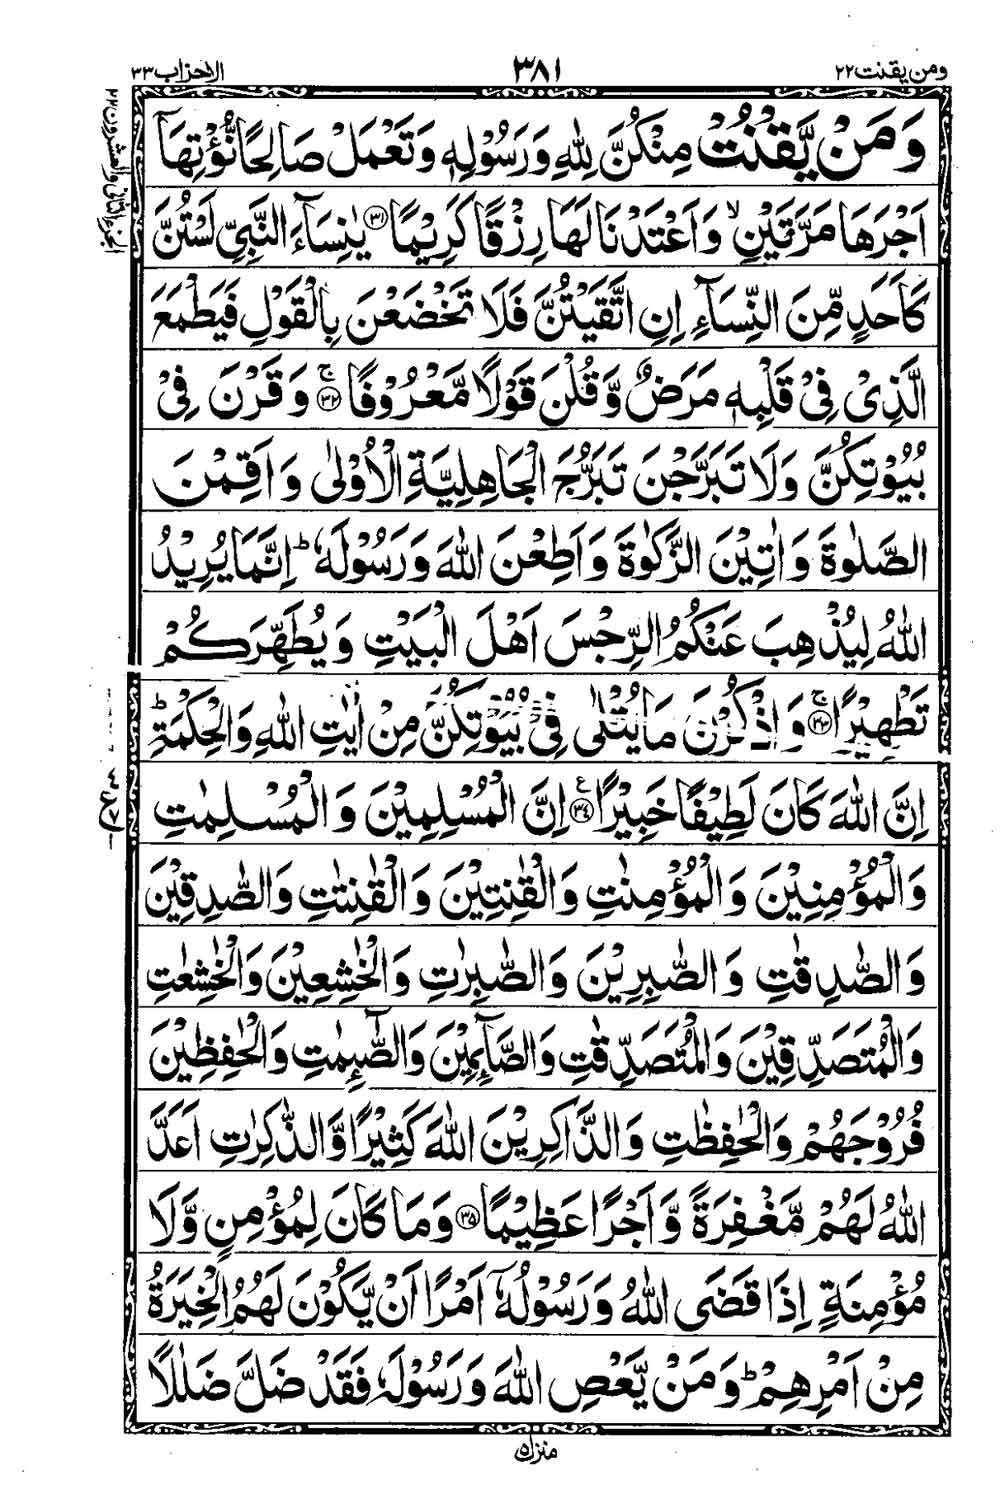 ومن یقنت ۲۲
۳۸۱
الاحزاب ۳۳
وَمَنْ يَّقْنُتْ مِنْكُنَّ لِلّٰهِ وَرَسُوْلِهٖ وَتَعْمَلْ صَالِحًا نُّؤْتِهَاۤ
اَجْرَهَا مَرَّتَيْنِۙ وَاَعْتَدْنَا لَهَا رِزْقًا كَرِيْمًا ﴿۳۱﴾ يٰنِسَآءَ النَّبِىِّ لَسْتُنَّ
كَاَحَدٍ مِّنَ النِّسَآءِ اِنِ اتَّقَيْتُنَّ فَلَا تَخْضَعْنَ بِالْقَوْلِ فَيَطْمَعَ
الَّذِىْ فِىْ قَلْبِهٖ مَرَضٌ وَّقُلْنَ قَوْلًا مَّعْرُوْفًا ۚ﴿۳۲﴾ وَقَرْنَ فِىْ
بُيُوْتِكُنَّ وَلَا تَبَرَّجْنَ تَبَرُّجَ الْجَاهِلِيَّةِ الْاُوْلٰى وَاَقِمْنَ
الصَّلٰوةَ وَاٰتِيْنَ الزَّكٰوةَ وَاَطِعْنَ اللّٰهَ وَرَسُوْلَهٗؕ اِنَّمَا يُرِيْدُ
اللّٰهُ لِيُذْهِبَ عَنْكُمُ الرِّجْسَ اَهْلَ الْبَيْتِ وَيُطَهِّرَكُمْ
تَطْهِيْرًا ۚ﴿۳۳﴾ وَاذْكُرْنَ مَا يُتْلٰى فِىْ بُيُوْتِكُنَّ مِنْ اٰيٰتِ اللّٰهِ وَالْحِكْمَةِؕ
اِنَّ اللّٰهَ كَانَ لَطِيْفًا خَبِيْرًا ﴿۳۴﴾ع اِنَّ الْمُسْلِمِيْنَ وَالْمُسْلِمٰتِ
وَالْمُؤْمِنِيْنَ وَالْمُؤْمِنٰتِ وَالْقٰنِتِيْنَ وَالْقٰنِتٰتِ وَالصّٰدِقِيْنَ
وَالصّٰدِقٰتِ وَالصّٰبِرِيْنَ وَالصّٰبِرٰتِ وَالْخٰشِعِيْنَ وَالْخٰشِعٰتِ
وَالْمُتَصَدِّقِيْنَ وَالْمُتَصَدِّقٰتِ وَالصَّآئِمِيْنَ وَالصّٰٓئِمٰتِ وَالْحٰفِظِيْنَ
فُرُوْجَهُمْ وَالْحٰفِظٰتِ وَالذَّاكِرِيْنَ اللّٰهَ كَثِيْرًا وَّالذّٰكِرٰتِ اَعَدَّ
اللّٰهُ لَهُمْ مَّغْفِرَةً وَّاَجْرًا عَظِيْمًا ﴿۳۵﴾ وَمَا كَانَ لِمُؤْمِنٍ وَّلَا
مُؤْمِنَةٍ اِذَا قَضَى اللّٰهُ وَرَسُوْلُهٗۤ اَمْرًا اَنْ يَّكُوْنَ لَهُمُ الْخِيَرَةُ
مِنْ اَمْرِهِمْؕ وَمَنْ يَّعْصِ اللّٰهَ وَرَسُوْلَهٗ فَقَدْ ضَلَّ ضَلٰلًا
الجزء الثانى والعشرون ۲۲
منزل ۵